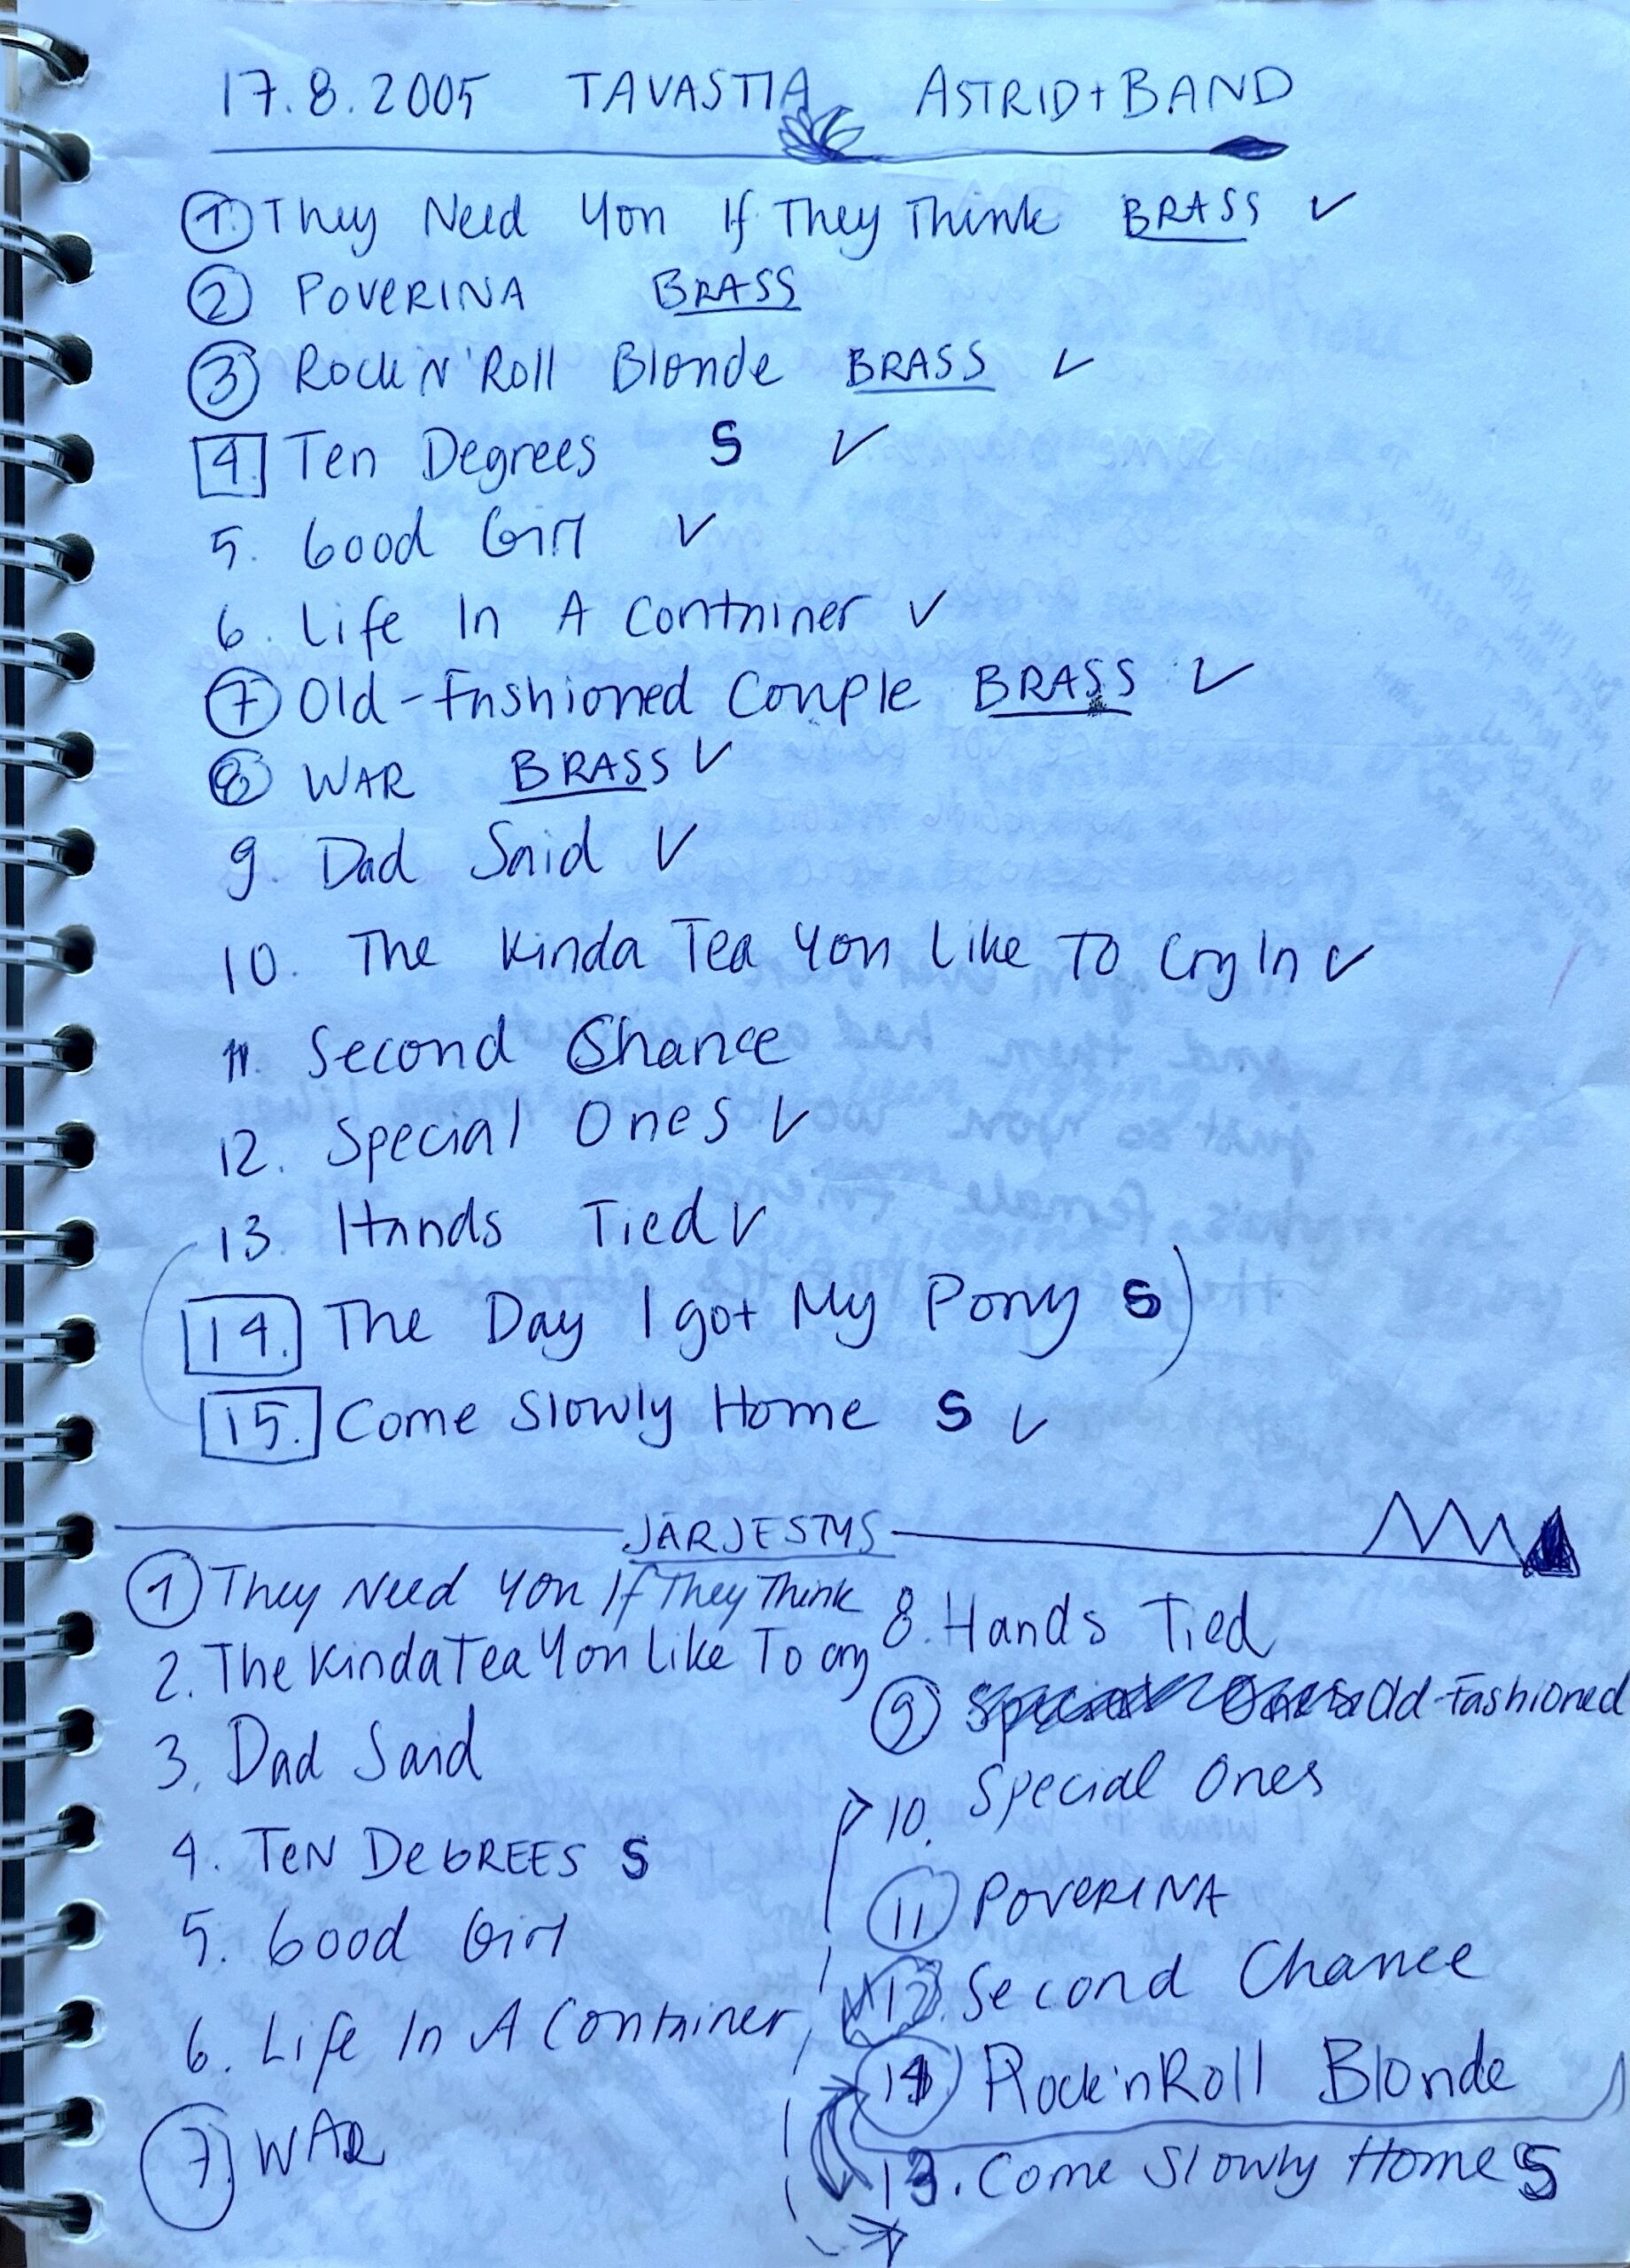 17.8.2005 TAVASTIA ASTRID+BAND
1. They Need You If They Think BRASS ✓
2 POVERINA BRASS
3 Rock N' Roll Blonde BRASS ✓
4. Ten Degrees S ✓
5. Good Girl ✓
6. Life In A Container ✓
7 Old-Fashioned Couple BRASS ✓
8 WAR BRASS ✓
9. Dad Said ✓
10. The Kinda Tea You Like To Cry In ✓
11. Second Chance
12. Special Ones ✓
13. Hands Tied ✓
14. The Day I got My Pony S)
15. Come Slowly Home S ✓
JÄRJESTYS
1 They Need You If They Think
2. The Kinda Tea You Like To cry
3. Dad Said
4. TEN DEGREES S
5. Good Girl
6. Life In A Container
7. WAR
8. Hands Tied
9 Special Ones Old-Fashioned
10. Special Ones
11 POVERINA
12. Second Chance
14 Rock'n Roll Blonde
13. Come Slowly Home S